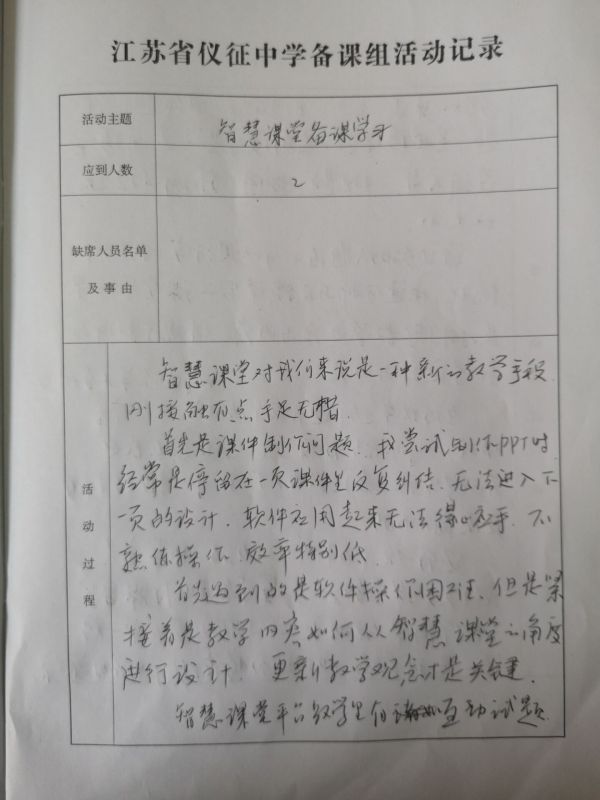 江苏省仪征中学备课组活动记录
活动主题 智慧课堂备课学习
应到人数 2
缺席人员名单
及事由
活动过程
智慧课堂对我们来说是一种新的教学手段
刚接触有点手足无措.
首先是课件制作问题.我尝试制作PPT时
经常是停留在一页课件上反复纠结.无法进入下
一页的设计.软件应用起来无法得心应手.不
熟练操作 效率特别低.
首先遇到的是软件操作困难.但是紧
接着是教学内容如何从智慧课堂的角度
进行设计.更新教学观念才是关键.
智慧课堂平台 学生 互动试题